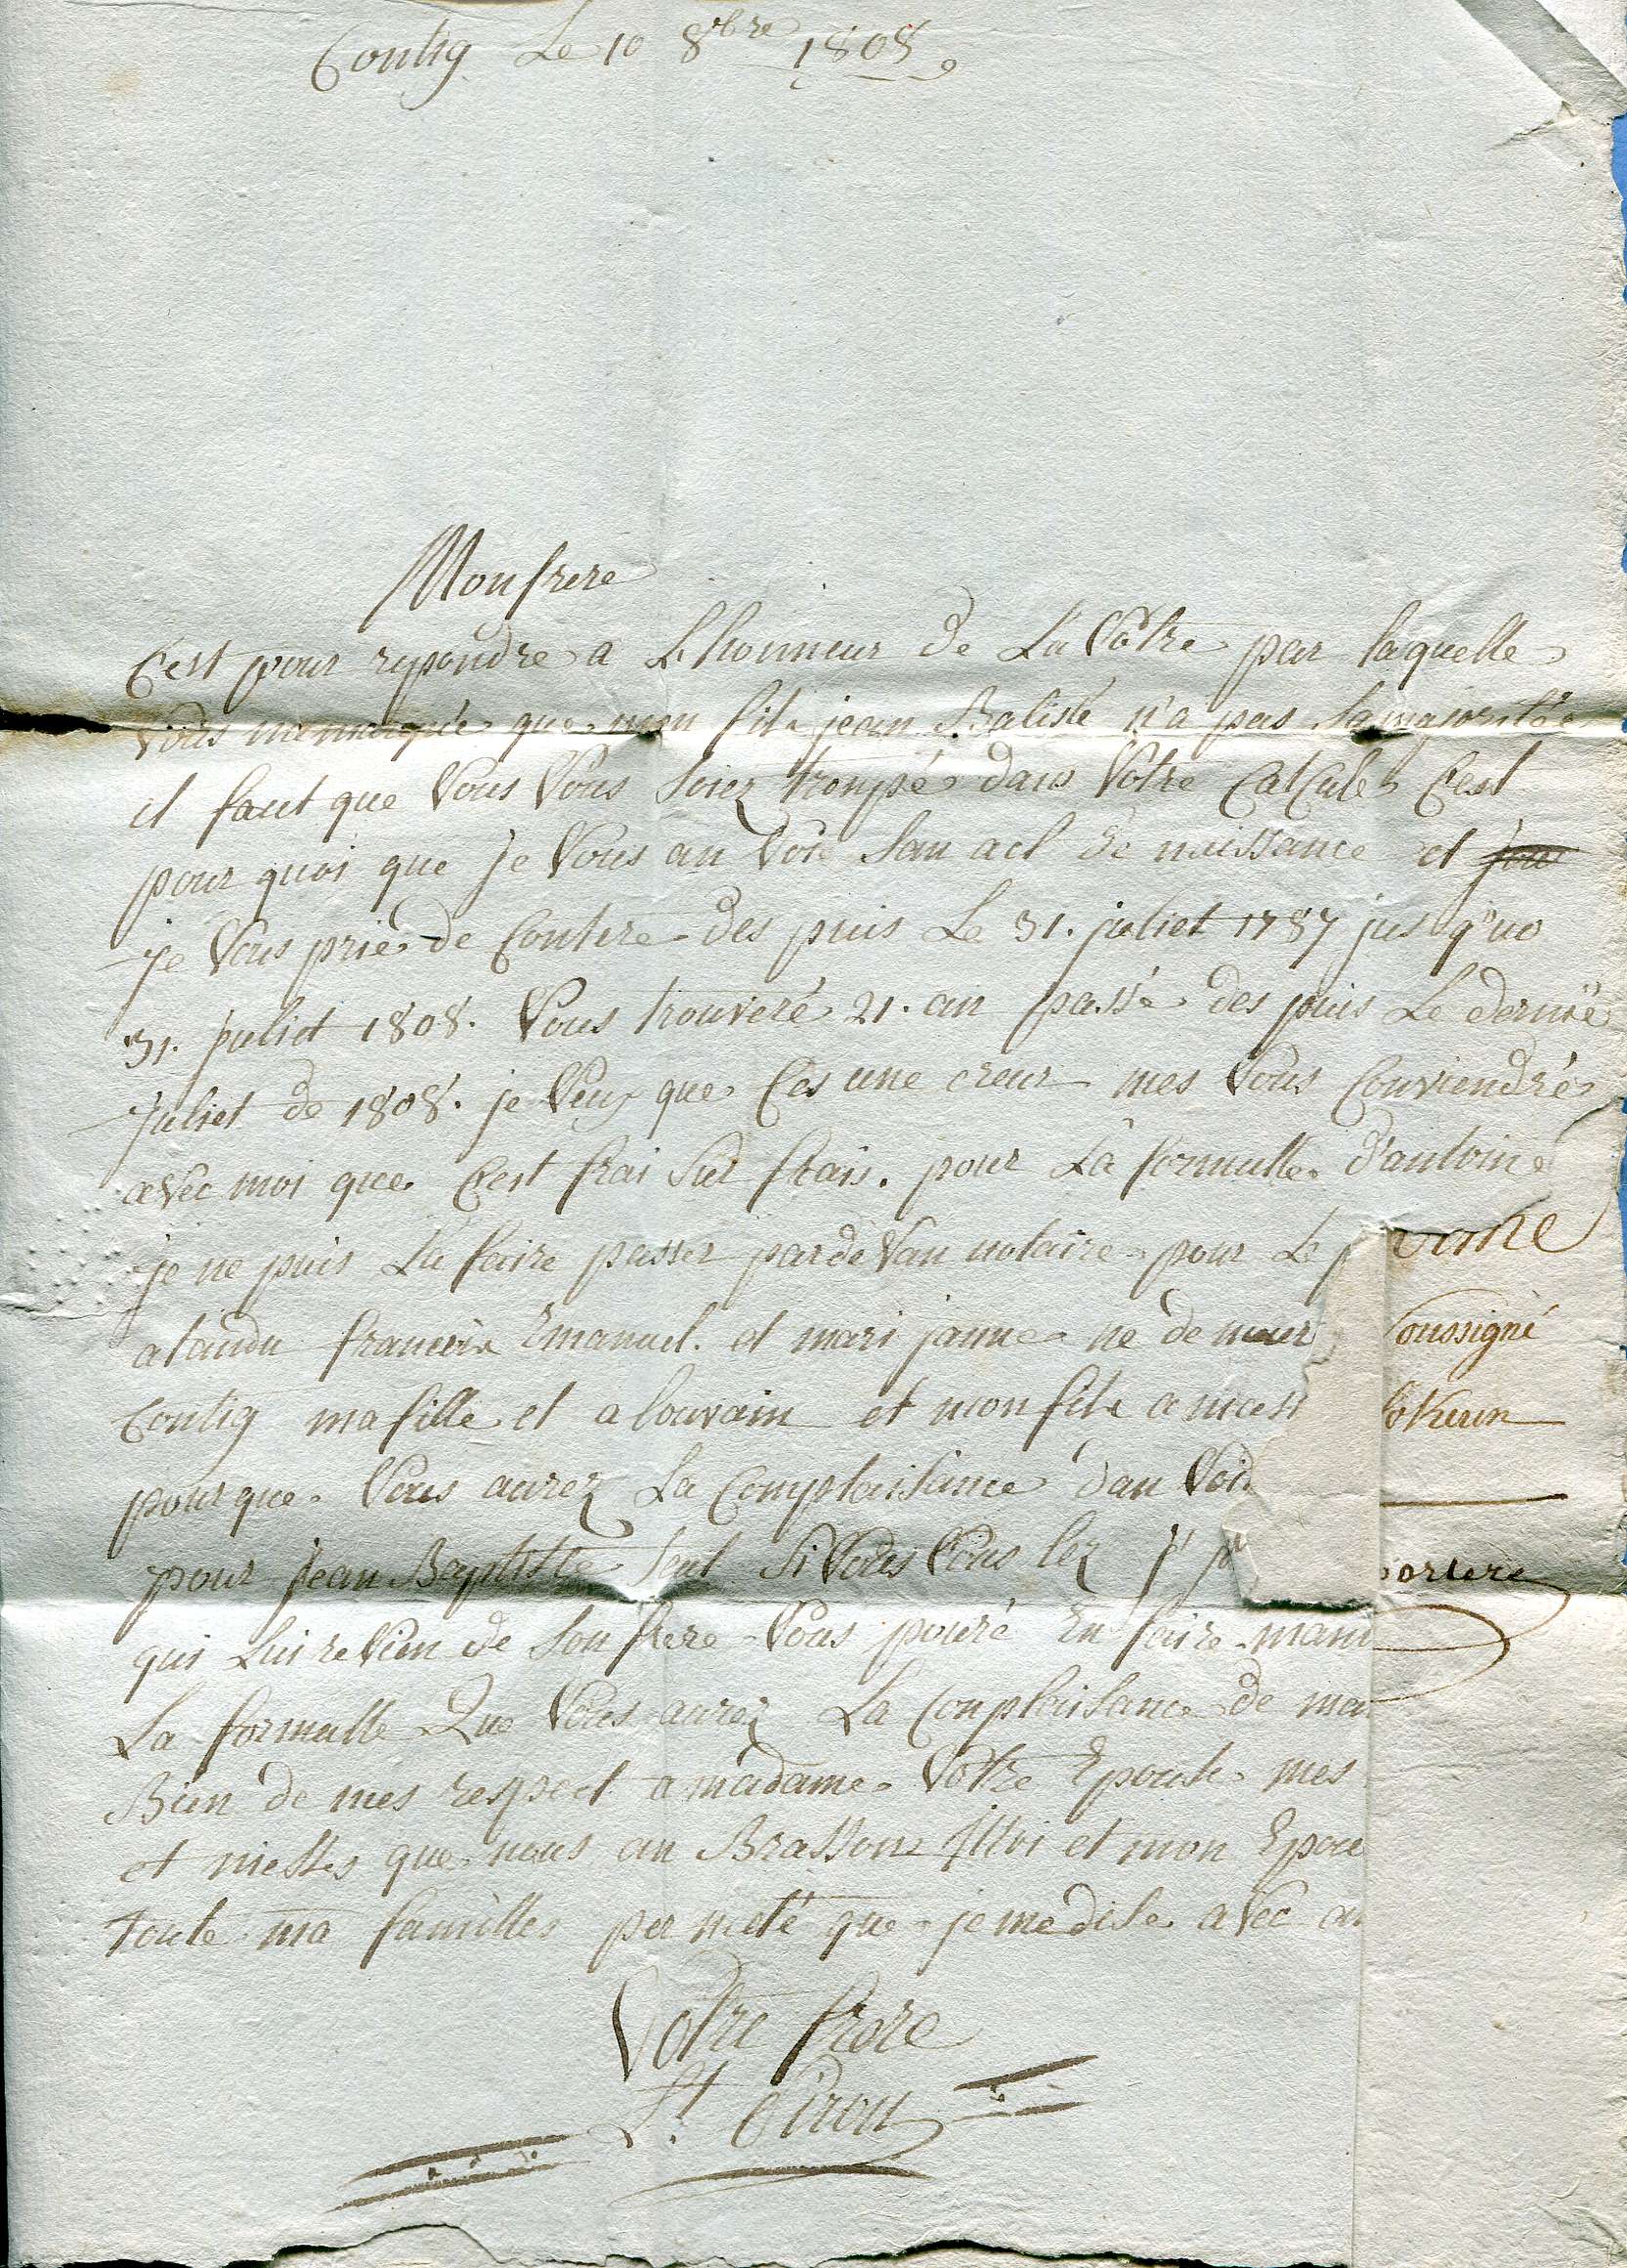 Contig Le 10 8bre 1808
Monfrere
C'est pour repondre a Lhonneur de La Votre par laquelle
Vous me marquée que mon fils jean Batiste n'a pas sa majoritée
il faut que Vous Vous soiez trompé dans Votre Calcule C'est
pour quoi que je Vous an Voie san act de naissance et
je Vous prie de Contere des puis Le 31. juliet 1787 jusqu'uo
31. juliet 1808. Vous trouveré 21. an passé des puis Le dernie
juliet de 1808. je Veux que Ces une ereur mes Vous Conviendré
avec moi que C'est frai sur frais. pour La formulle d'antoine
je ne puis La faire passer par de Van notaire pour Le
atandu francoix Emanuel. et mari janne ne demeur
Contig ma fille et a louvain et mon fils a
pour que Vous aurez La Complaisance d'an Voi
pour jean Baptiste seul si Vous Vous lez
qui Lui reVien de son frere Vous pouré En faire
La formulle Que Vous aurez La Conplaisance de
Bien de mes respect a madame Votre Epouse mes
et niesses que nous an Brassons Moi et mon Epou
toute ma familles per meté que je me dise avec
Votre frere
Piron
oussigné